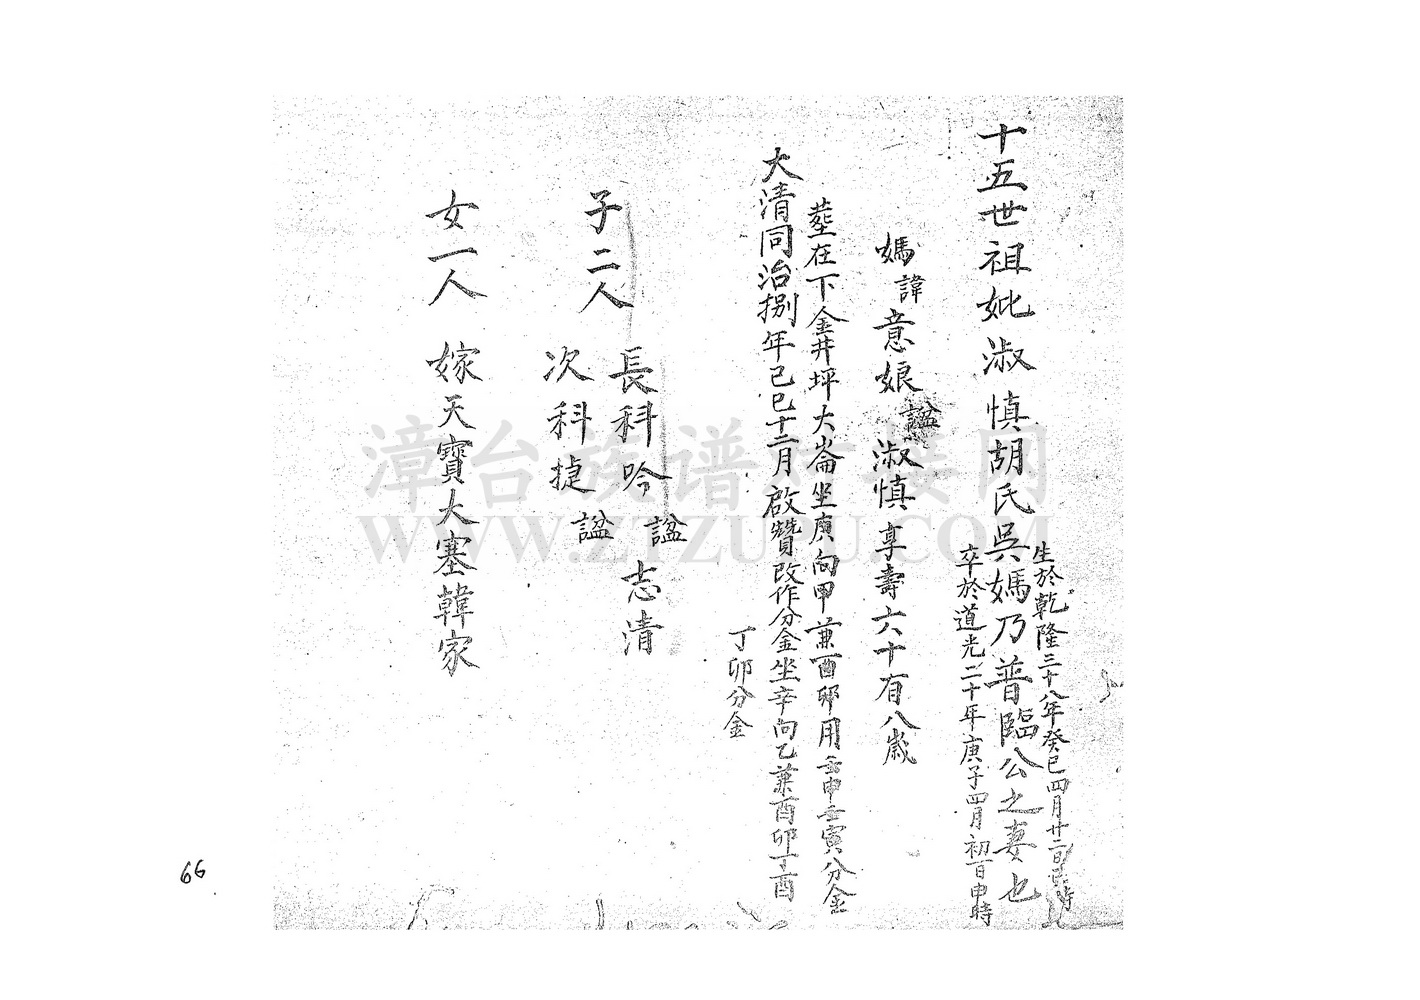 十五世祖妣淑慎胡氏吳媽乃普臨公之妻也
生於乾隆三十八年癸巳四月廿二日巳時
卒於道光二十年庚子四月初百申時
媽諱意娘諡淑慎享壽六十有八歲
塟在下金井坪大崙坐庚向甲兼酉卯用壬申壬寅分金
大清同治捌年己巳十二月啟攢改作分金坐辛向乙兼酉卯丁酉
丁卯分金
子二人
長科吟諡志清
次科捷諡
女一人 嫁天寶大寨韓家
漳台族谱对接网
WWW.ZTZUPU.COM
66